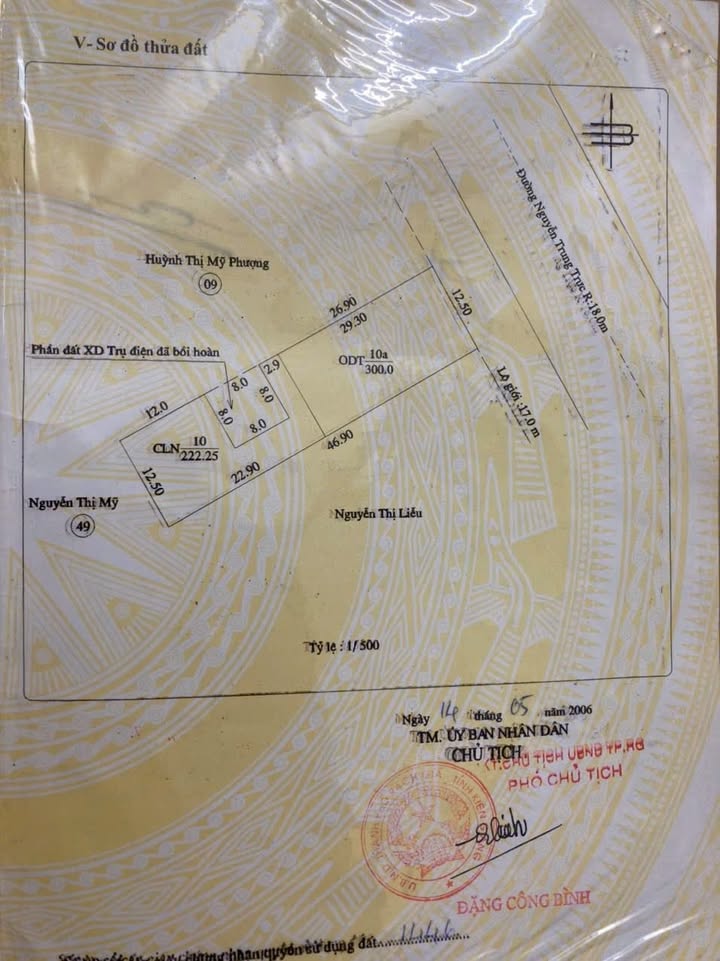 V- Sơ đồ thửa đất
Đường Nguyễn Trung Trực R:18.0m
Huỳnh Thị Mỹ Phượng
09
26.90
29.30
12.50
Phần đất XD Trụ điện đã bồi hoàn
2.9
ODT 10a
300.0
8.0
8.0
8.0
8.0
12.0
Lộ giới :17.0 m
46.90
CLN 10
222.25
22.90
12.50
Nguyễn Thị Mỹ
49
Nguyễn Thị Liễu
Tỷ lệ : 1/ 500
Ngày 14 tháng 05 năm 2006
TM. ỦY BAN NHÂN DÂN
CHỦ TỊCH
KT.CHỦ TỊCH UBND TP.RG
PHÓ CHỦ TỊCH
ĐẶNG CÔNG BÌNH
chứng nhận quyền sử dụng đất